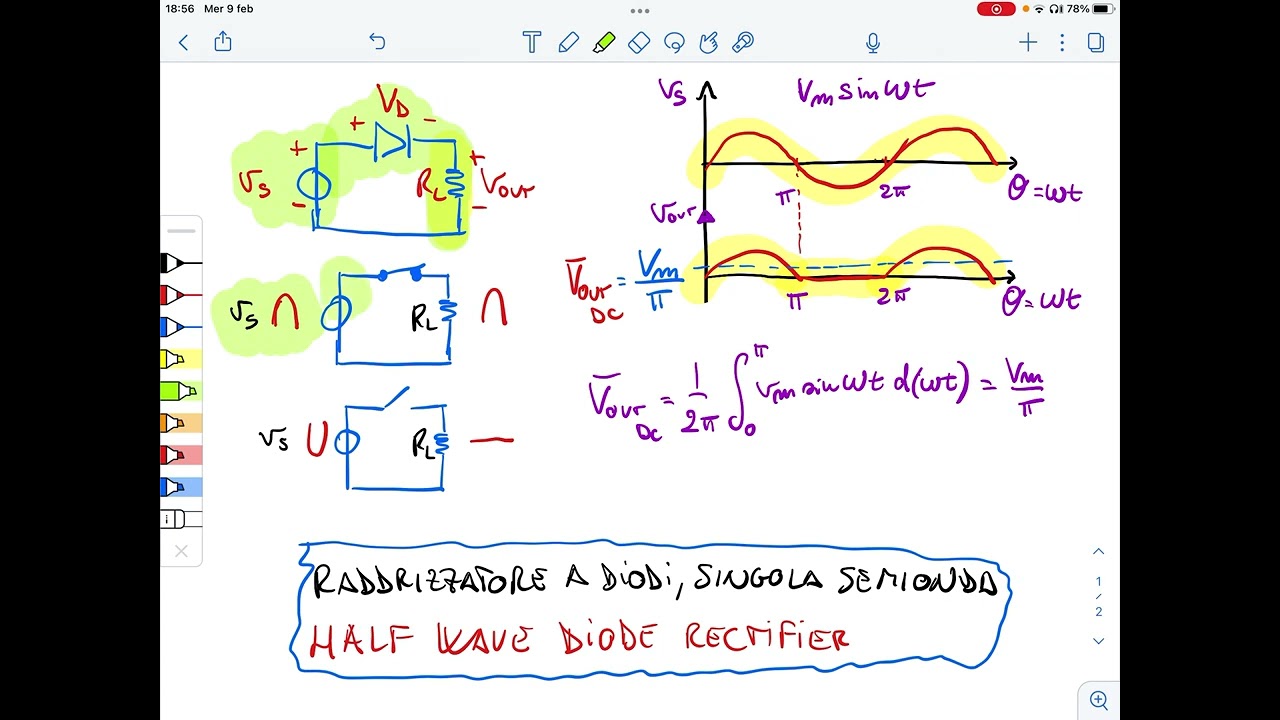 18:56 Mer 9 feb
78%
T
V_D
+ -
+
v_s
-
R_L
+
V_OUT
-
v_s
R_L
v_s
R_L
v_s
V_m sin ωt
π
2π
θ=ωt
v_OUT
V̅_OUT DC = V_m/π
π
2π
θ=ωt
V̅_OUT DC = 1/2π ∫_0^π V_m sin ωt d(ωt) = V_m/π
RADDRIZZATORE A DIODI, SINGOLA SEMIONDA
HALF WAVE DIODE RECTIFIER
1
/
2